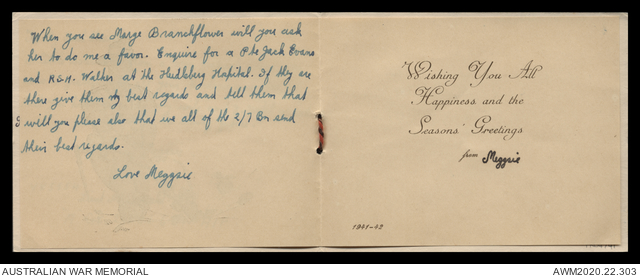 When you see Marge Branchflower will you ask
her to do me a favor. Enquire for a Pte Jack Evans
and R&H. Walker at the Hiedleberg Hapital. If they are
there give them my best regards and tell them that
will you please also that we all of the 2/7 Bn send
their best regards.
Love Meggsie
Wishing You All
Happiness and the
Seasons' Greetings
from Meggsie
1941-42
AUSTRALIAN WAR MEMORIAL
AWM2020.22.303